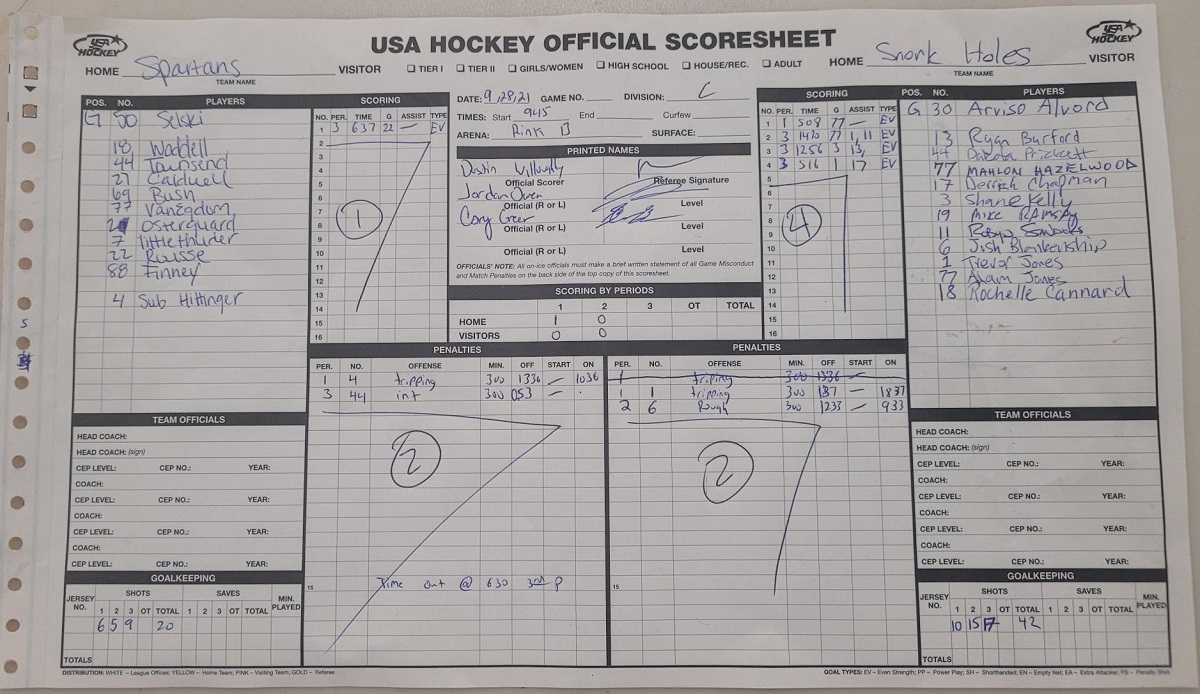 USA HOCKEY OFFICIAL SCORESHEET
USA HOCKEY
USA HOCKEY
HOME Spartans VISITOR
TEAM NAME
☐ TIER I ☐ TIER II ☐ GIRLS/WOMEN ☐ HIGH SCHOOL ☐ HOUSE/REC. ☐ ADULT
HOME Snork Holes VISITOR
TEAM NAME
POS. NO. PLAYERS
G 50 Selski
18 Waddell
44 Townsend
27 Caldwell
69 Bush
77 Vanegdom
Osterguard
7 littletholder
22 Ruisse
88 Finney
4 Sub Hittinger
SCORING
NO. PER. TIME G ASSIST TYPE
1 3 637 22 — EV
2
3
4
5
6
7
8
9
10
11
12
13
14
15
16
1
DATE: 9,28,21 GAME NO. DIVISION: C
TIMES: Start 945 End Curfew
ARENA: Rink B SURFACE:
PRINTED NAMES
Dustin Willoughby
Official Scorer Referee Signature
Jordan Owen
Official (R or L) Level
Cory Greer
Official (R or L) Level
Official (R or L) Level
OFFICIALS' NOTE: All on-ice officials must make a brief written statement of all Game Misconduct
and Match Penalties on the back side of the top copy of this scoresheet.
SCORING BY PERIODS
1 2 3 OT TOTAL
HOME 1 0
VISITORS 0 0
SCORING
NO. PER. TIME G ASSIST TYPE
1 1 508 77 — EV
2 3 1470 77 1, 11 EV
3 3 1256 3 13, EV
4 3 516 1 17 EV
5
6
7
8
9
10
11
12
13
14
15
16
4
POS. NO. PLAYERS
G 30 Arviso Alvord
13 Ryan Burford
44 Dakota Prickett
77 MAHLON HAZELWOOD
17 Derrick Chapman
3 Shane Kelly
19 Mike Ramsay
11 Robyn Sanders
6 Josh Blankenship
1 Trevor Jones
77 Adam Jones
18 Rochelle Cannard
PENALTIES
PER. NO. OFFENSE MIN. OFF START ON
1 4 tripping 300 1336 — 1036
3 44 int 300 053 —
2
15 Time out @ 630 3rd P
PENALTIES
PER. NO. OFFENSE MIN. OFF START ON
1 tripping 300 1336 —
1 1 tripping 300 137 — 1837
2 6 Rough 300 1233 — 933
2
15
TEAM OFFICIALS
HEAD COACH:
HEAD COACH: (sign)
CEP LEVEL: CEP NO.: YEAR:
COACH:
CEP LEVEL: CEP NO.: YEAR:
COACH:
CEP LEVEL: CEP NO.: YEAR:
COACH:
CEP LEVEL: CEP NO.: YEAR:
GOALKEEPING
JERSEY NO. SHOTS SAVES MIN. PLAYED
1 2 3 OT TOTAL 1 2 3 OT TOTAL
6 5 9 20
TOTALS
TEAM OFFICIALS
HEAD COACH:
HEAD COACH: (sign)
CEP LEVEL: CEP NO.: YEAR:
COACH:
CEP LEVEL: CEP NO.: YEAR:
COACH:
CEP LEVEL: CEP NO.: YEAR:
COACH:
CEP LEVEL: CEP NO.: YEAR:
GOALKEEPING
JERSEY NO. SHOTS SAVES MIN. PLAYED
1 2 3 OT TOTAL 1 2 3 OT TOTAL
10 15 17 42
TOTALS
DISTRIBUTION: WHITE – League Offices; YELLOW – Home Team; PINK – Visiting Team; GOLD – Referee
GOAL TYPES: EV – Even Strength; PP – Power Play; SH – Shorthanded; EN – Empty Net; EA – Extra Attacker; PS – Penalty Shot